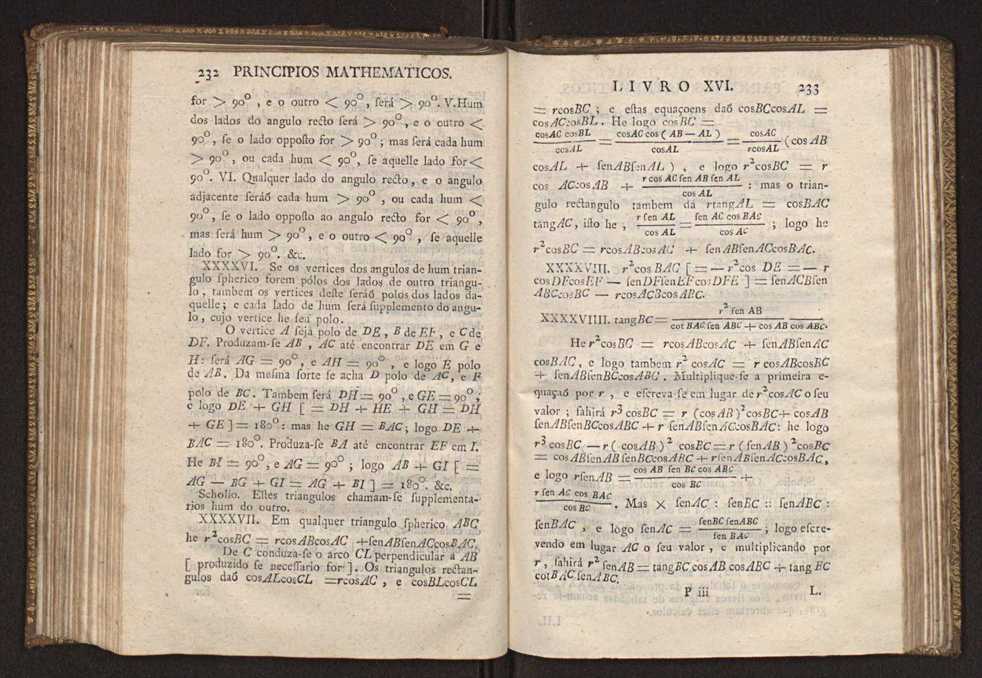 232 PRINCIPIOS MATHEMATICOS.
for > 90°, e o outro < 90°, ſerá > 90°. V. Hum
dos lados do angulo recto ſerá > 90°, e o outro <
90°, ſe o lado oppoſto for > 90°; mas ſerá cada hum
> 90°, ou cada hum < 90°, ſe aquelle lado for <
90°. VI. Qualquer lado do angulo recto, e o angulo
adjacente ſeráõ cada hum > 90°, ou cada hum <
90°, ſe o lado oppoſto ao angulo recto for < 90°,
mas ſerá hum > 90°, e o outro < 90°, ſe aquelle
lado for > 90°. &c.
XXXXVI. Se os vertices dos angulos de hum trian-
gulo ſpherico forem pólos dos lados de outro triangu-
lo, tambem os vertices deſte ſeráõ polos dos lados da-
quelle; e cada lado de hum ſerá ſupplemento do angu-
lo, cujo vertice he ſeu polo.
O vertice A ſeja polo de DE, B de EF, e C de
DF. Produzam-ſe AB, AC até encontrar DE em G e
H: ſerá AG = 90°, e AH = 90°, e logo E polo
de AB. Da meſma ſorte ſe acha D polo de AC, e F
polo de BC. Tambem ſerá DH = 90°, e GE = 90°,
e logo DE + GH [ = DH + HE + GH = DH
+ GE ] = 180°: mas he GH = BAC; logo DE +
BAC = 180°. Produza-ſe BA até encontrar EF em I.
He BI = 90°, e AG = 90°; logo AB + GI [ =
AG — BG + GI = AG + BI ] = 180°. &c.
Scholio. Eſtes triangulos chamam-ſe ſupplementa-
rios hum do outro.
XXXXVII. Em qualquer triangulo ſpherico ABC
he r²cosBC = rcosABcosAC +ſenABſenACcosBAC.
De C conduza-ſe o arco CL perpendicular a AB
[ produzido ſe neceſſario for ]. Os triangulos rectan-
gulos daõ cosALcosCL =rcosAC, e cosBLcosCL
=
LIVRO XVI. 233
= rcosBC; e eſtas equaçoens daõ cosBCcosAL =
cosACcosBL. He logo cosBC =
cosAC cosBL / cosAL = cosAC cos ( AB — AL ) / cosAL = cosAC / rcosAL (cos AB
cosAL + ſenABſenAL ), e logo r²cosBC = r
cos ACcosAB + r cos AC ſen AB ſen AL / cos AL : mas o trian-
gulo rectangulo tambem dá rtangAL = cosBAC
tangAC, iſto he, r ſen AL / cos AL = ſen AC cos BAC / cos AC ; logo he
r²cosBC = rcosABcosAC + ſenABſenACcosBAC.
XXXXVIII. r²cos BAC [ = — r²cos DE = — r
cosDFcosEF — ſenDFſenEFcosDFE ] = ſenACBſen
ABCcosBC — rcosACBcosABC.
XXXXVIIII. tangBC = r² ſen AB / cot BAC ſen ABC + cos AB cos ABC.
He r²cosBC = rcosABcosAC + ſenABſenAC
cosBAC, e logo tambem r² cosAC = r cosABcosBC
+ ſenABſenBCcosABC. Multiplique-ſe a primeira e-
quaçaõ por r, e eſcreva-ſe em lugar de r²cosAC o ſeu
valor; ſahirá r³ cosBC = r (cosAB)²cosBC+ cosAB
ſenABſenBCcosABC + r ſenABſenACcosBAC: he logo
r³ cosBC — r ( cosAB )² cosBC = r ( ſenAB )²cosBC
= cosABſenABſenBCcosABC + rſenABſenACcosBAC,
e logo rſenAB = cos AB ſen BC cos ABC / cos BC +
r ſen AC cos BAC / cos BC . Mas × ſenAC : ſenBC :: ſenABC :
ſenBAC, e logo ſenAC = ſenBC ſenABC / ſen BAC ; logo eſcre-
vendo em lugar AC o ſeu valor, e multiplicando por
r, ſahirá r² ſenAB = tangBC cosAB cosABC + tang BC
cotBAC ſenABC.
P iii L.